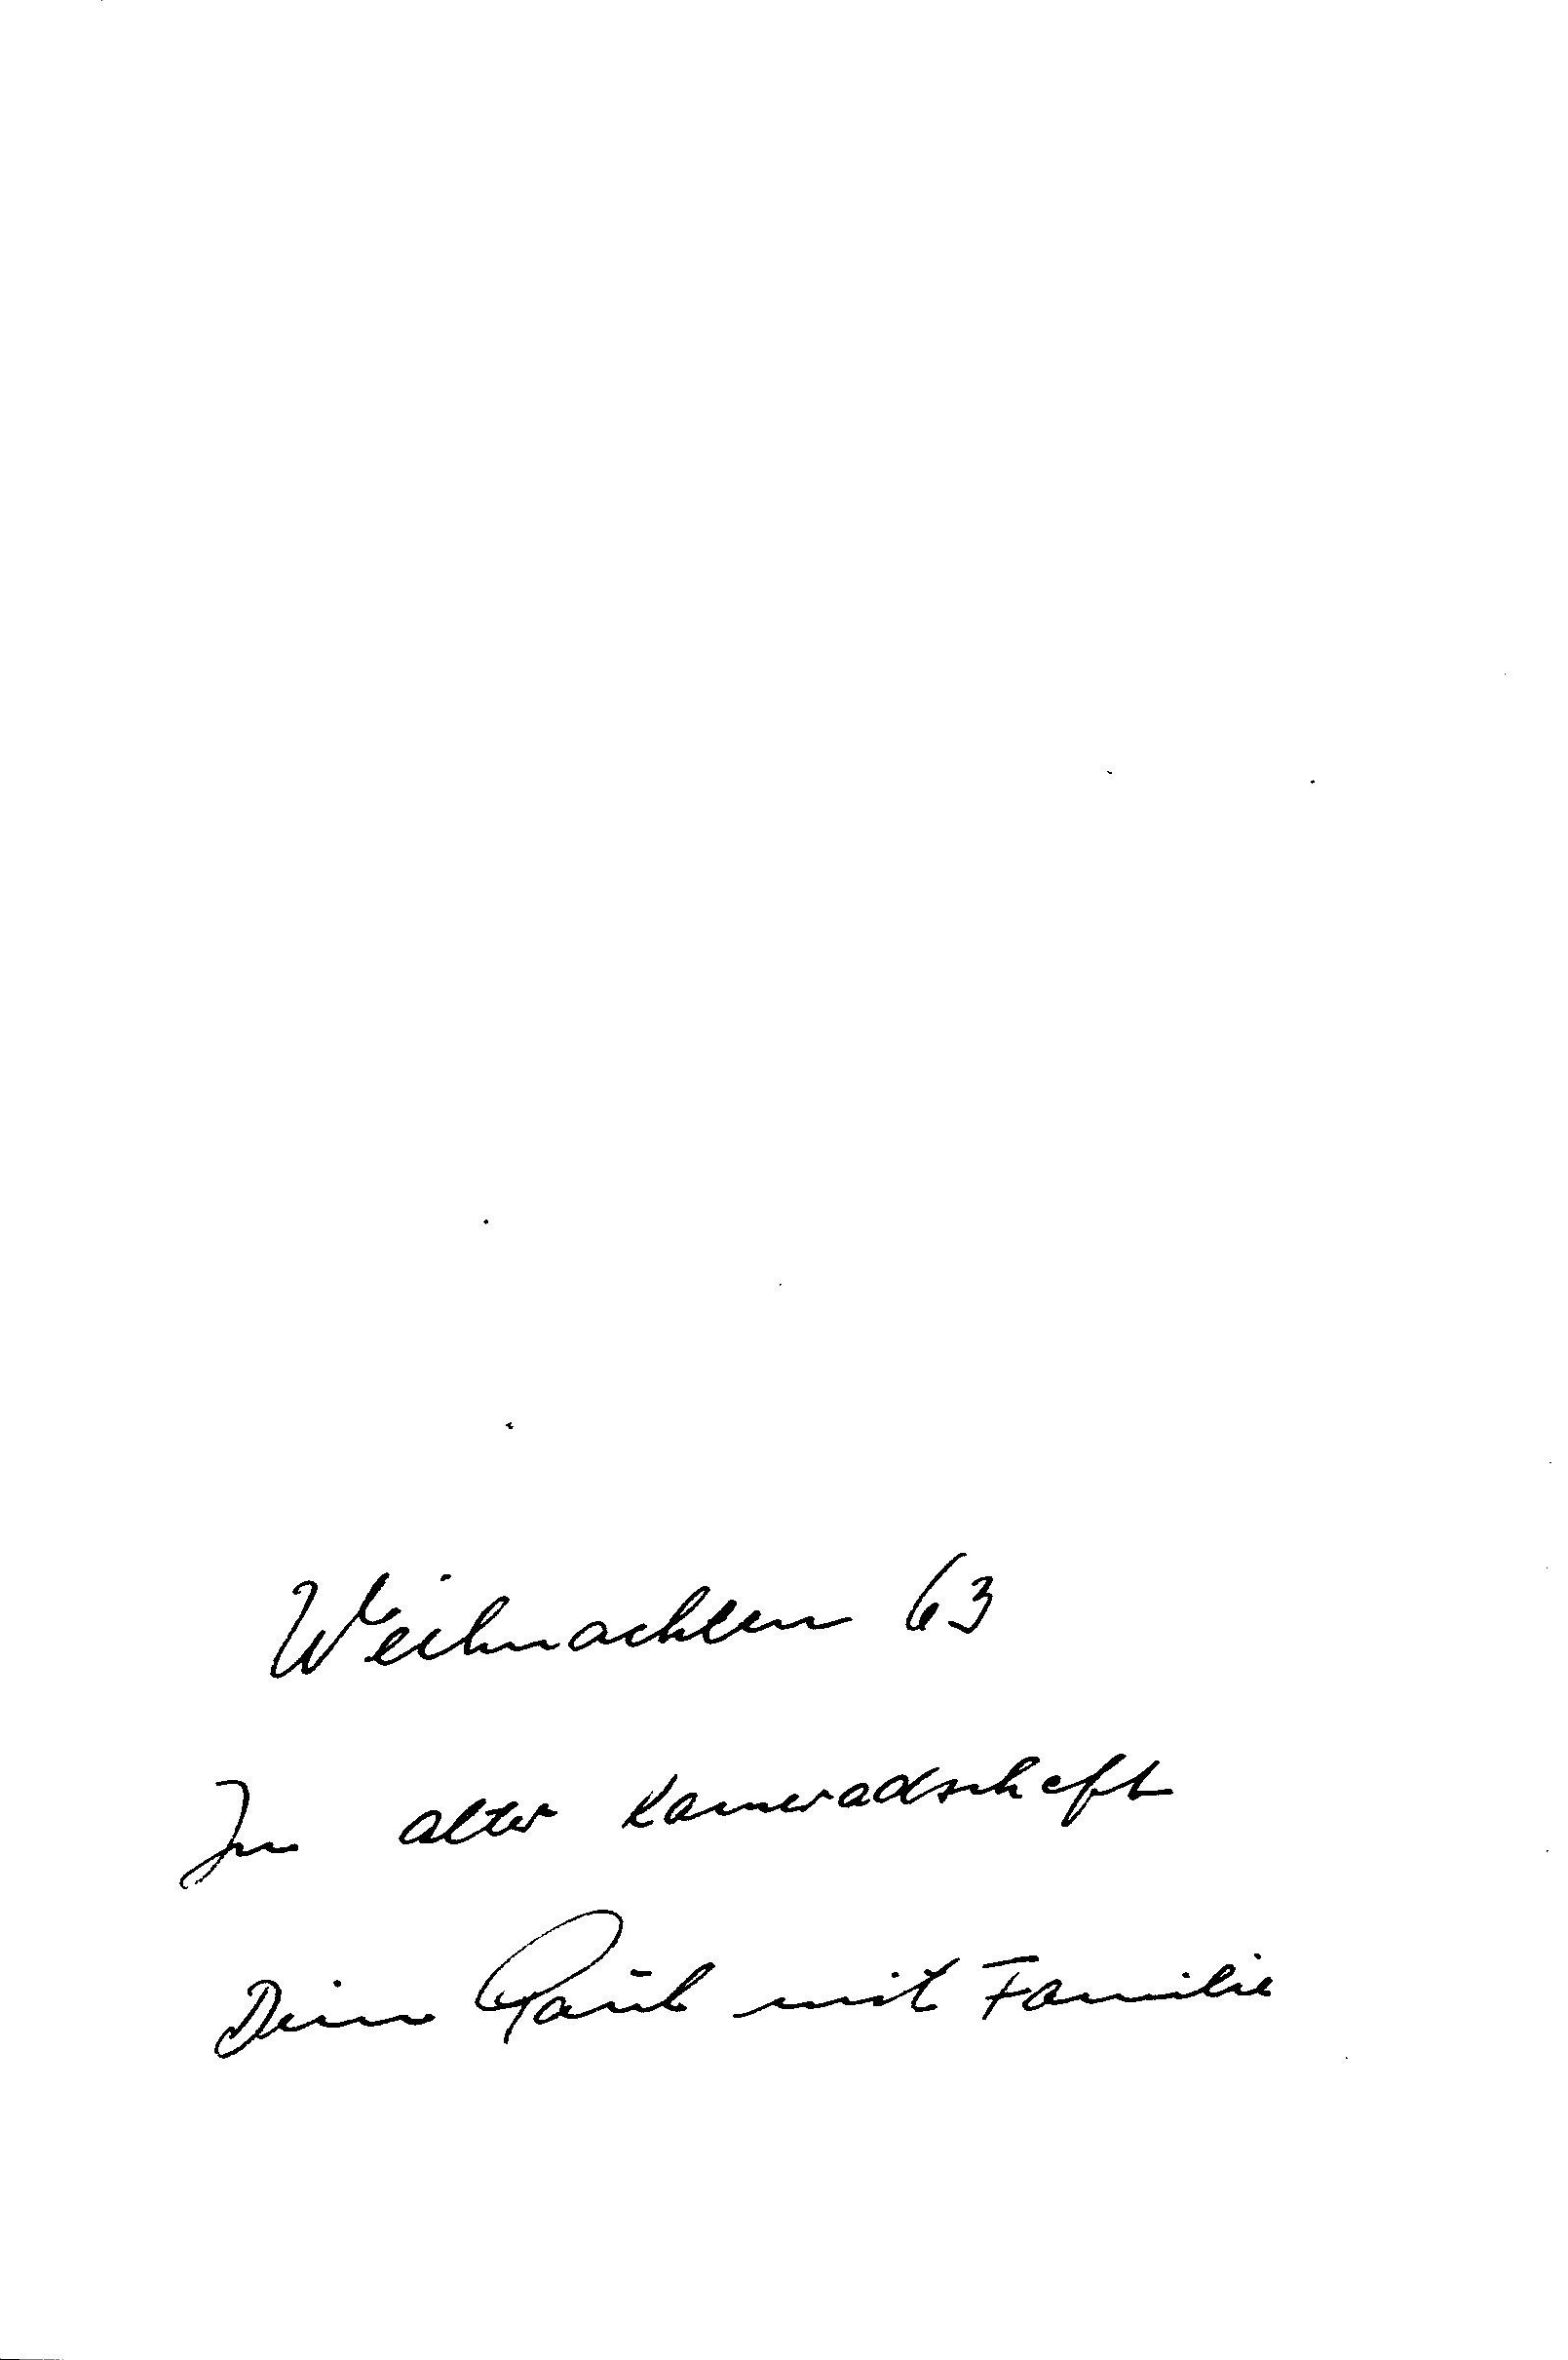 Weihnachten 63
In alter Kameradschaft
Dein Paul mit Familie